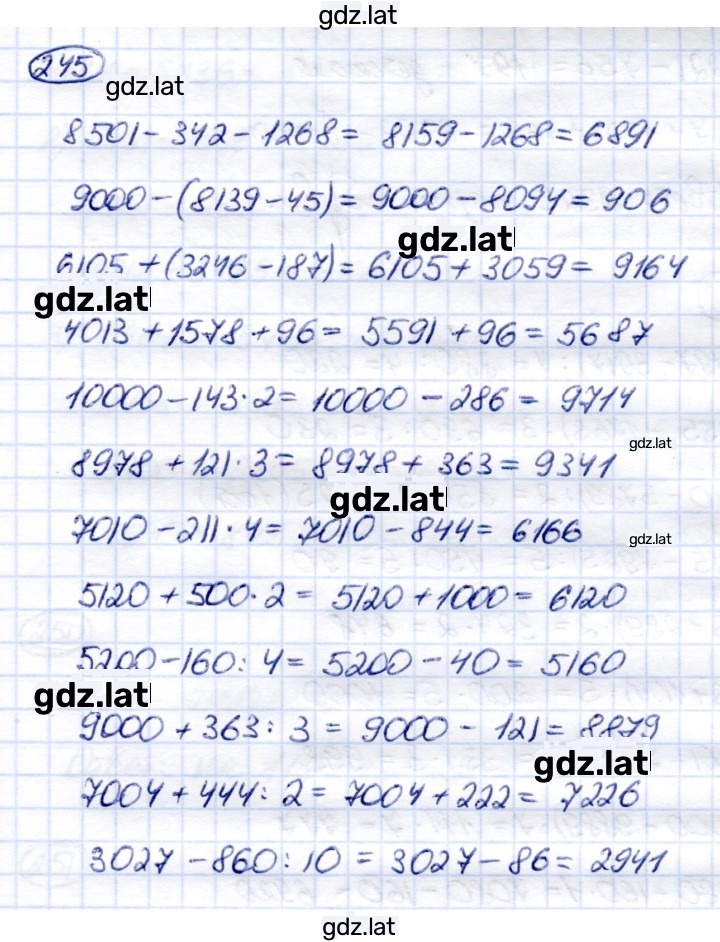 gdz.lat
245
gdz.lat
8501 - 342 - 1268 = 8159 - 1268 = 6891
9000 - (8139 - 45) = 9000 - 8094 = 906
gdz.lat
6105 + (3246 - 187) = 6105 + 3059 = 9164
gdz.lat
4013 + 1578 + 96 = 5591 + 96 = 5687
10000 - 143 · 2 = 10000 - 286 = 9714
gdz.lat
8978 + 121 · 3 = 8978 + 363 = 9341
gdz.lat
7010 - 211 · 4 = 7010 - 844 = 6166
gdz.lat
5120 + 500 · 2 = 5120 + 1000 = 6120
5200 - 160 : 4 = 5200 - 40 = 5160
gdz.lat
9000 + 363 : 3 = 9000 - 121 = 8879
gdz.lat
7004 + 444 : 2 = 7004 + 222 = 7226
3027 - 860 : 10 = 3027 - 86 = 2941
gdz.lat